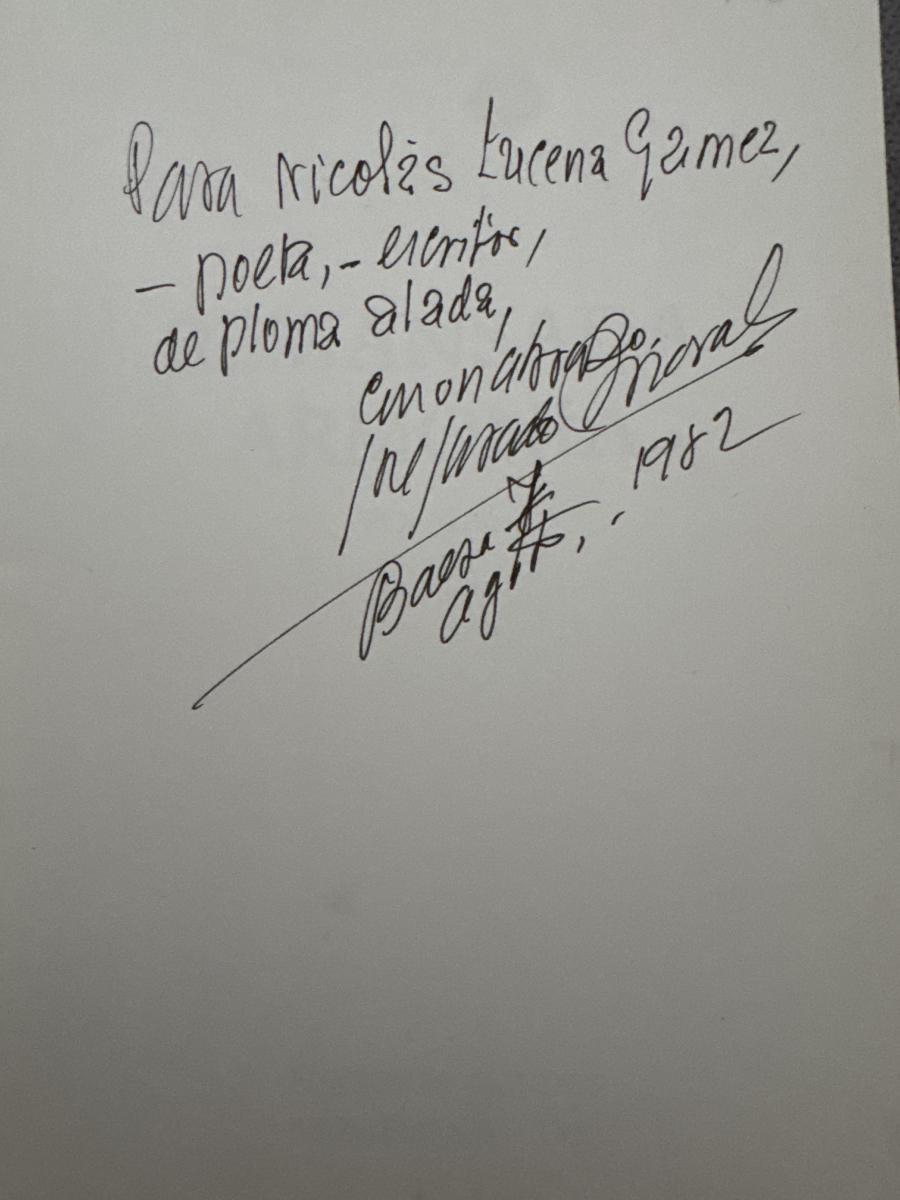 Para Nicolás Lucena Gámez,
– poeta, – escritor,
de pluma alada,
con un abrazo
Baeza
agto, . 1982